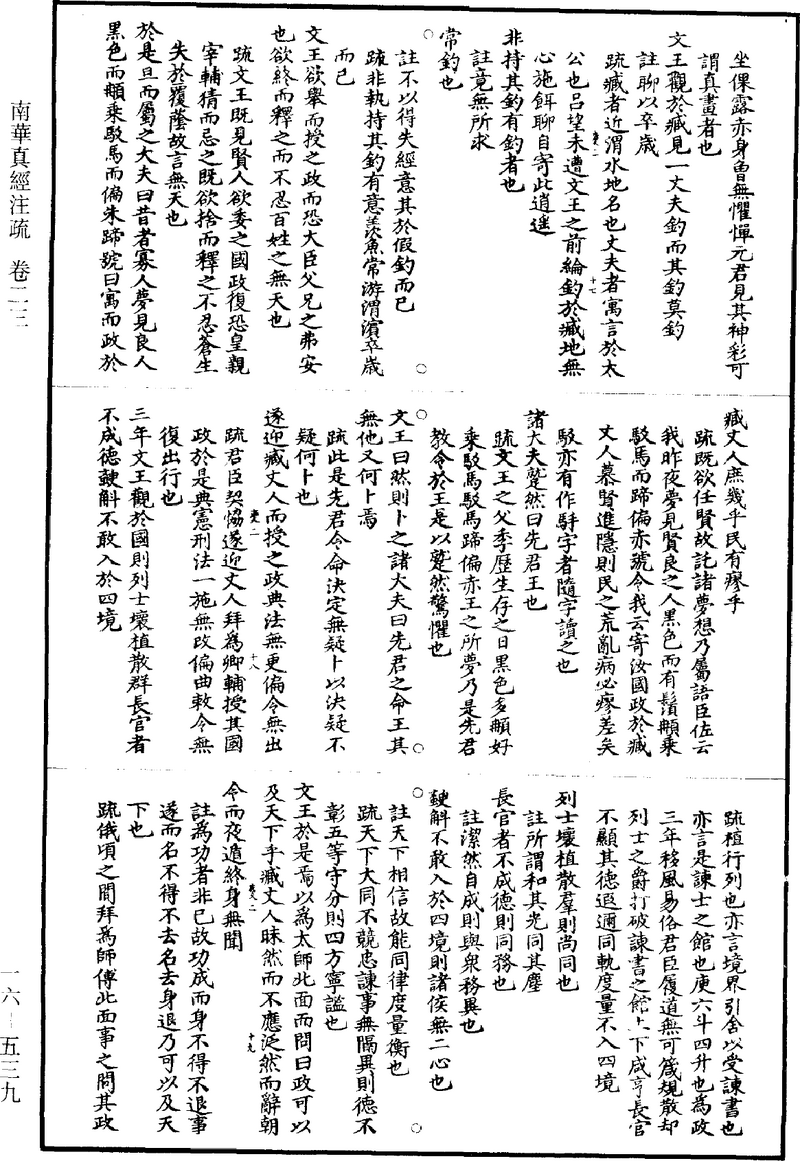 坐倮露赤身曾無懼憚元君見其神彩可
謂真畫者也
文王觀於臧見一丈夫釣而其釣莫釣
註聊以卒歲
疏臧者近渭水地名也丈夫者寓言於太
公也呂望未遭文王之前綸釣於臧地無
心施餌聊自寄此逍遥
非持其釣有釣者也
註竟無所求
常釣也
註不以得失經意其於假釣而已
疏非執持其釣有意羨魚常游渭濱卒歲
而已
文王欲舉而授之政而恐大臣父兄之弗安
也欲終而釋之而不忍百姓之無天也
疏文王既見賢人欲委之國政復恐皇親
宰輔猜而忌之既欲捨而釋之不忍蒼生
失於覆蔭故言無天也
於是旦而屬之大夫曰昔者寡人夢見良人
黑色而䫇乘駁馬而偏朱蹄號曰寓而政於
臧丈人庶幾乎民有瘳乎
疏既欲任賢故託諸夢想乃屬語臣佐云
我昨夜夢見賢良之人黑色而有鬚䫇乘
駁馬而蹄偏赤號令我云寄汝國政於臧
丈人慕賢進隱則民之荒亂病必瘳差矣
駁亦有作騂字者隨字讀之也
諸大夫蹵然曰先君王也
疏文王之父季歷生存之日黑色多䫇好
乘駁馬駁馬蹄偏赤王之所夢乃是先君
教令於王是以蹵然驚懼也
文王曰然則卜之諸大夫曰先君之命王其
無他又何卜焉
疏此是先君令命決定無疑卜以決疑不
疑何卜也
遂迎臧丈人而授之政典法無更偏令無出
疏君臣契恊遂迎丈人拜為卿輔授其國
政於是典憲刑法一施無改偏曲敕令無
復出行也
三年文王觀於國則列士壞植散群長官者
不成德䤦斛不敢入於四境
疏植行列也亦言境界引舍以受諫書也
亦言是諫士之館也庾六斗四升也為政
三年移風易俗君臣履道無可箴規散却
列士之爵打破諫書之館上下咸亨長官
不顯其德遐邇同軌度量不入四境
列士壞植散羣則尚同也
註所謂和其光同其塵
長官者不成德則同務也
註潔然自成則與衆務異也
䤦斛不敢入於四境則諸侯無二心也
註天下相信故能同律度量衡也
疏天下大同不競忠諫事無隔異則德不
彰五等守分則四方寧謐也
文王於是焉以為太師北面而問曰政可以
及天下乎臧丈人昧然而不應泛然而辭朝
令而夜遁終身無聞
註為功者非己故功成而身不得不退事
遂而名不得不去名去身退乃可以及天
下也
疏俄頃之間拜為師傅北面事之問其政
南華真經注疏 卷二三
一六－五三九